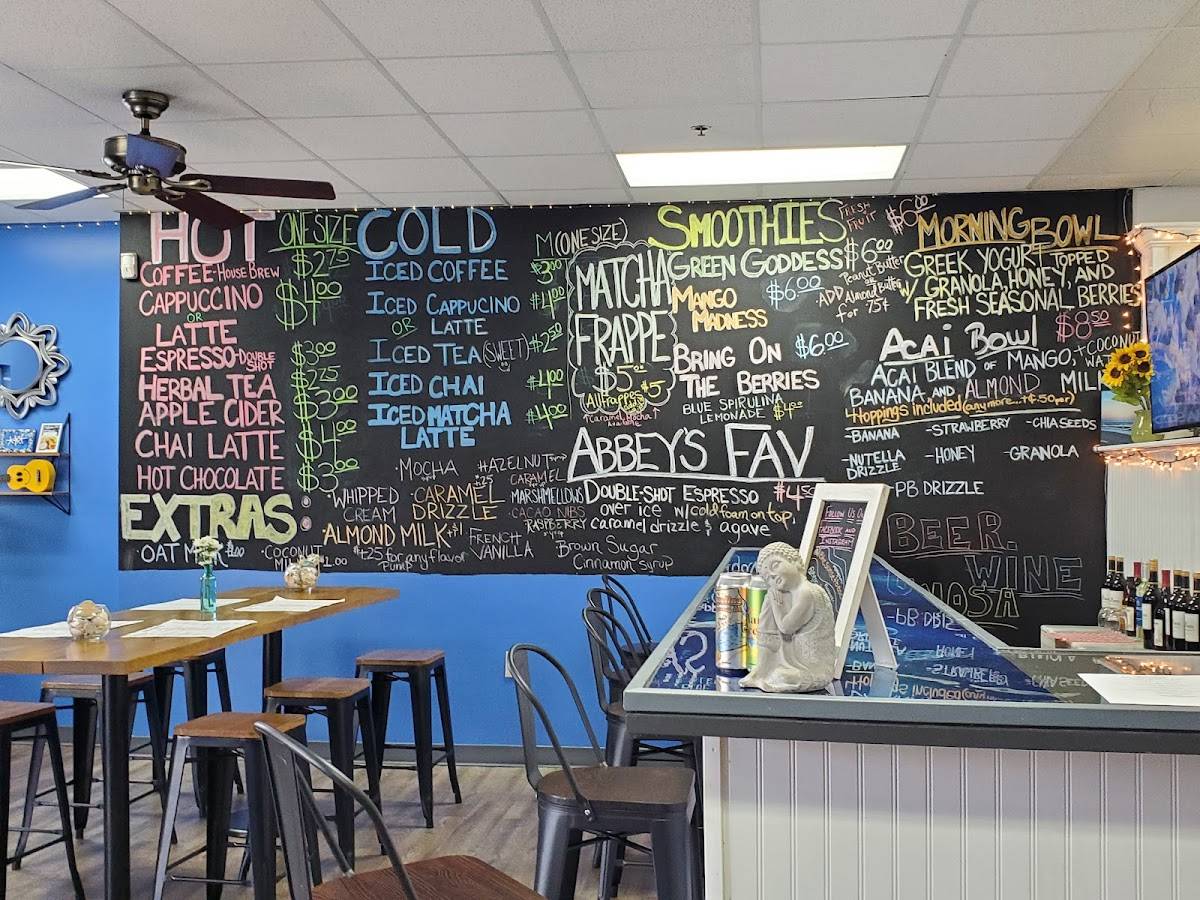 HOT
ONE SIZE
COFFEE-HOUSE BREW $2.75
CAPPUCCINO $4.00
OR
LATTE
ESPRESSO-DOUBLE SHOT $3.00
HERBAL TEA $2.75
APPLE CIDER $3.00
CHAI LATTE $4.00
HOT CHOCOLATE $3.00
COLD
M(ONE SIZE)
ICED COFFEE
ICED CAPPUCINO $4.00
OR
LATTE
ICED TEA (SWEET) $2.50
ICED CHAI $4.00
ICED MATCHA $4.00
LATTE
MATCHA
FRAPPE
$5.
All Frappes $5
SMOOTHIES
FRESH
FRUIT
$6.00
GREEN GODDESS $6.00
MANGO
MADNESS
$6.00
Peanut Butter
ADD Almond Butter
for .75¢
BRING ON
THE BERRIES
$6.00
BLUE SPIRULINA
LEMONADE $4.00
MORNING BOWL
GREEK YOGURT TOPPED
W/ GRANOLA, HONEY, AND
FRESH SEASONAL BERRIES
$8.50
ACAI BOWL
ACAI BLEND OF MANGO, COCONUT
BANANA AND ALMOND MILK
4 toppings included (any more...+$.50 per)
-BANANA
-STRAWBERRY
-CHIA SEEDS
-NUTELLA
DRIZZLE
-HONEY
-GRANOLA
-PB DRIZZLE
ABBEY'S FAV
DOUBLE-SHOT ESPRESSO
over ice w/ cold foam on top,
caramel drizzle & agave
EXTRAS:
OAT
·COCONUT
·MOCHA
·WHIPPED
CREAM
·CARAMEL
DRIZZLE
·ALMOND MILK +$1
+.25 for any flavor
HAZELNUT
CARAMEL
MARSHMELLOWS
CACAO NIBS
RASPBERRY
FRENCH
VANILLA
Brown Sugar
Cinnamon Syrup
BEER.
WINE
FOLLOW US ON
FACEBOOK AND
INSTAGRAM